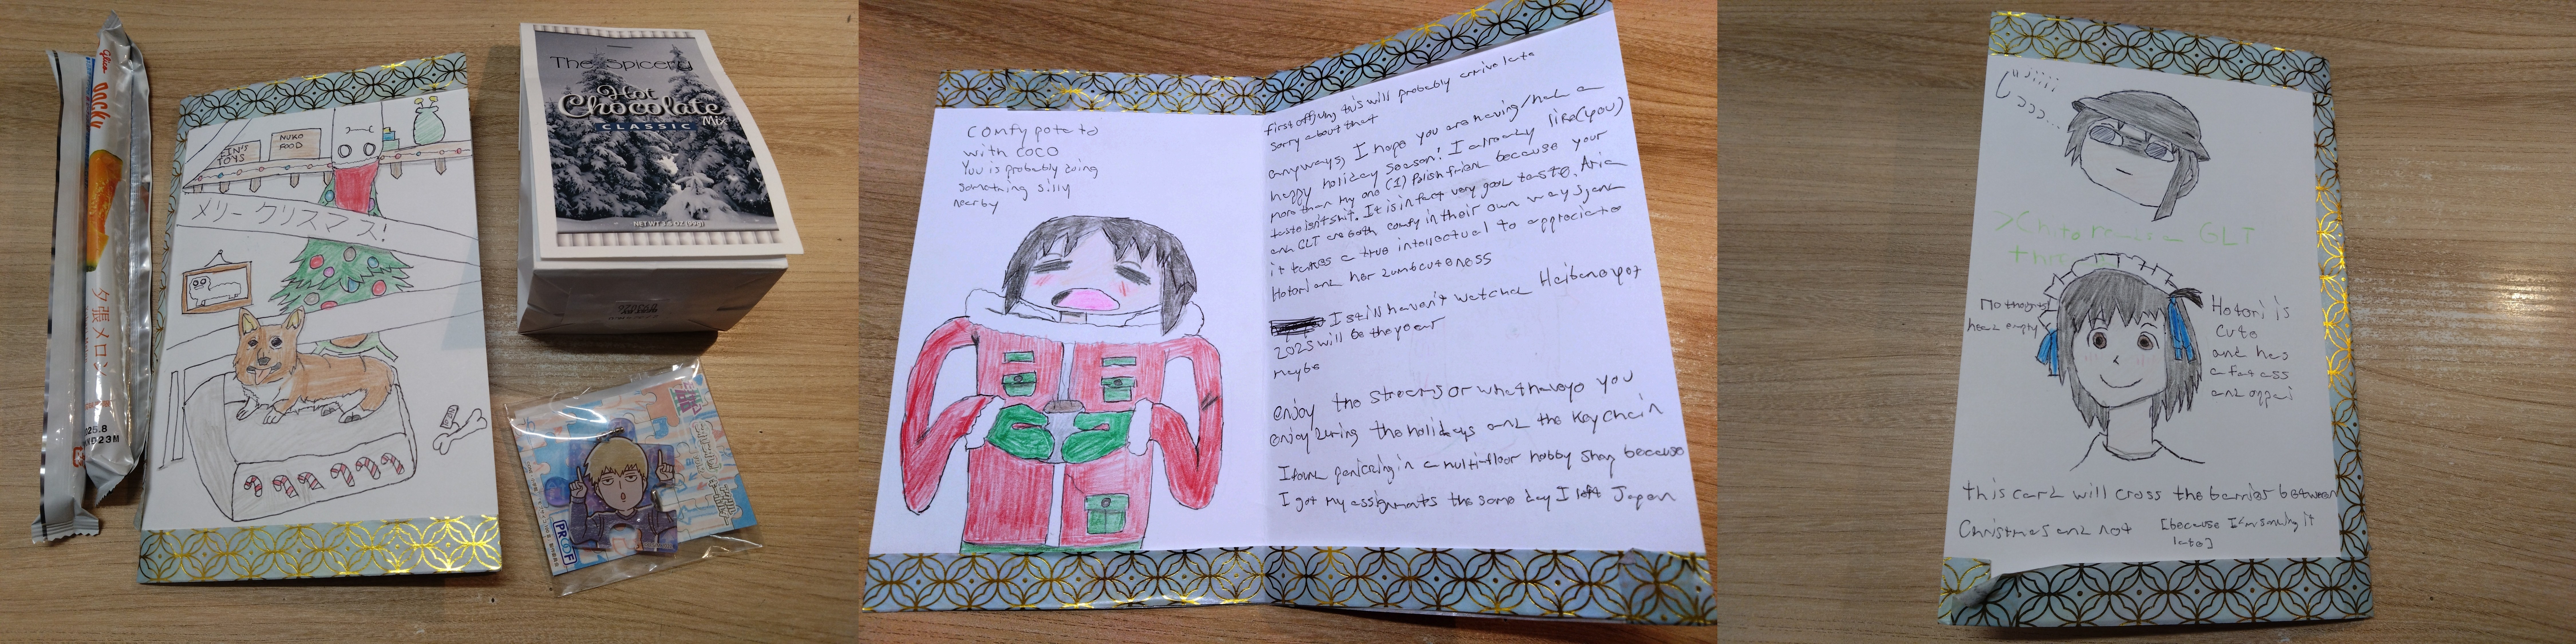 glico
POCKY
夕張メロン
2025.8
メリークリスマス!
EIN'S
TOYS
NUKO
FOOD
The Spicery
Hot
Chocolate
Mix
CLASSIC
NET WT 3.5 OZ (99g)
PROOF
Comfy potato
with coco
Yuu is probably doing
something silly
nearby
first off, ung this will probably arrive late
sorry about that
anyways, I hope you are having/had a
happy holiday season! I already like (you)
more than my one (1) Polish friend because your
taste isn't shit. It is in fact very good taste. Aria
and GLT are both comfy in their own ways, and
it takes a true intellectual to appreciate
Hotori and her dumb cuteness
I still haven't watched Haibane yet
2025 will be the year
maybe
enjoy the streams or whathaveyo you
enjoy during the holidays and the keychain
I found panicking in a multi-floor hobby shop because
I got my assignments the same day I left Japan
じーーー
>Chito
GLT
No thoughts
head empty
Hotori is
cute
and has
a fat ass
and oppai
this card will cross the barrier between
Christmas and not [because I'm sending it
late]